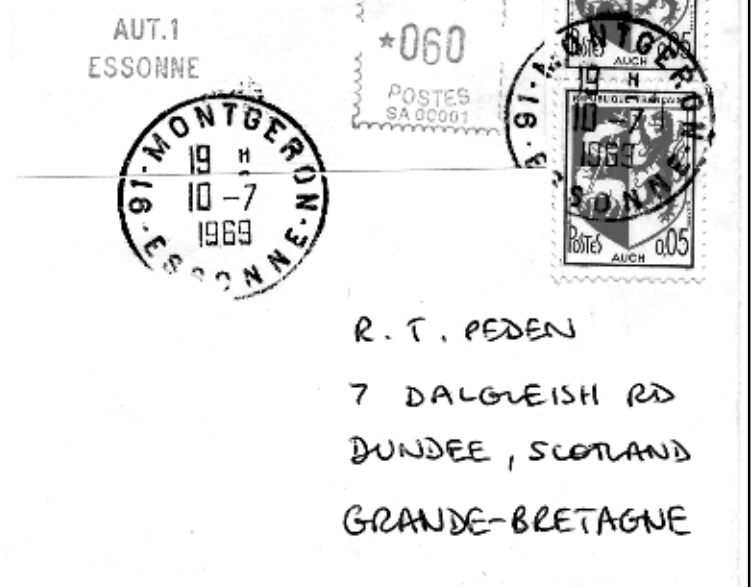 AUT.1
ESSONNE
*060
POSTES
SA 00001
POSTES 0,05
AUCH
91-MONTGERON-ESSONNE
19 H
10 -7
1969
91-MONTGERON-ESSONNE
19 H
10 -7
1969
REPUBLIQUE FRANÇAISE
POSTES 0,05
AUCH
R. T. PEDEN
7 DALGLEISH RD
DUNDEE, SCOTLAND
GRANDE-BRETAGNE